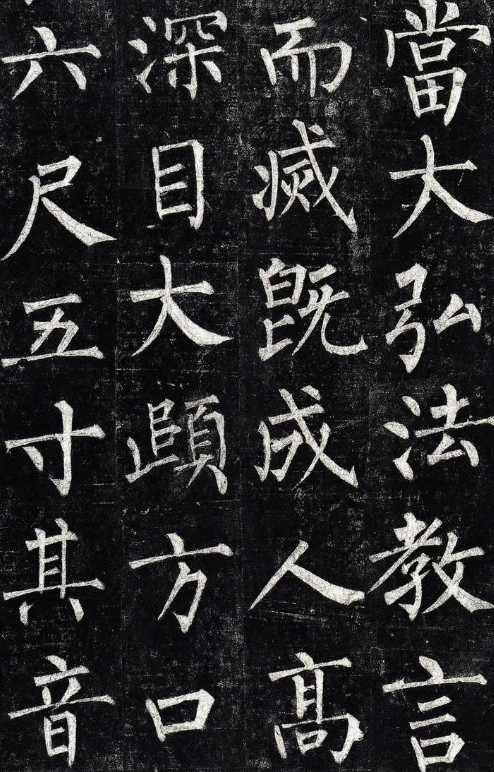 當大弘法教言
而滅既成人高
深目大頤方口
六尺五寸其音